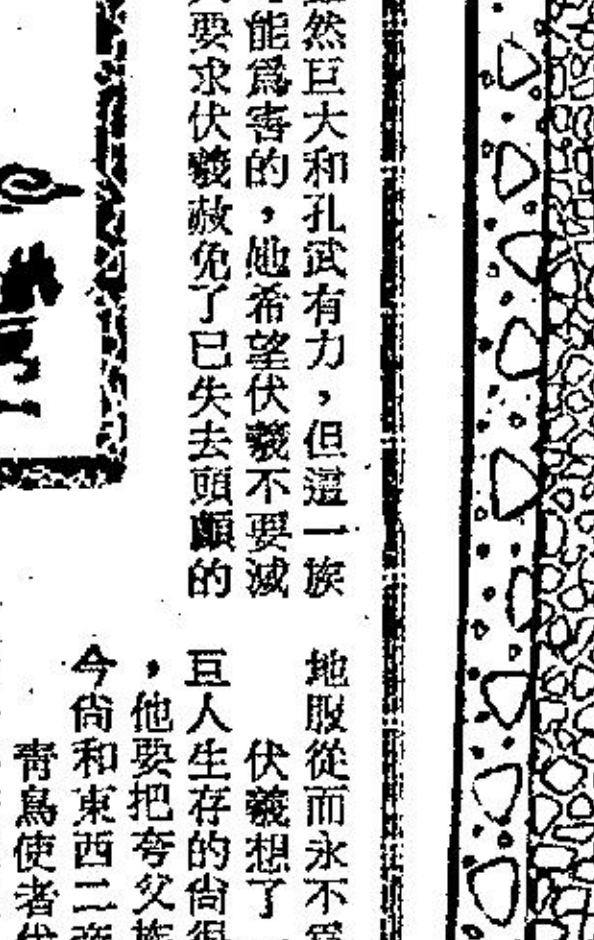 然巨大和孔武有力，但這一族
能爲害的，她希望伏羲不要滅
要求伏羲赦免了已失去頭顱的
地服從而永不爲
伏羲想了一
巨人生存的尙很
，他要把夸父族
今尙和東西二
靑鳥使者伏